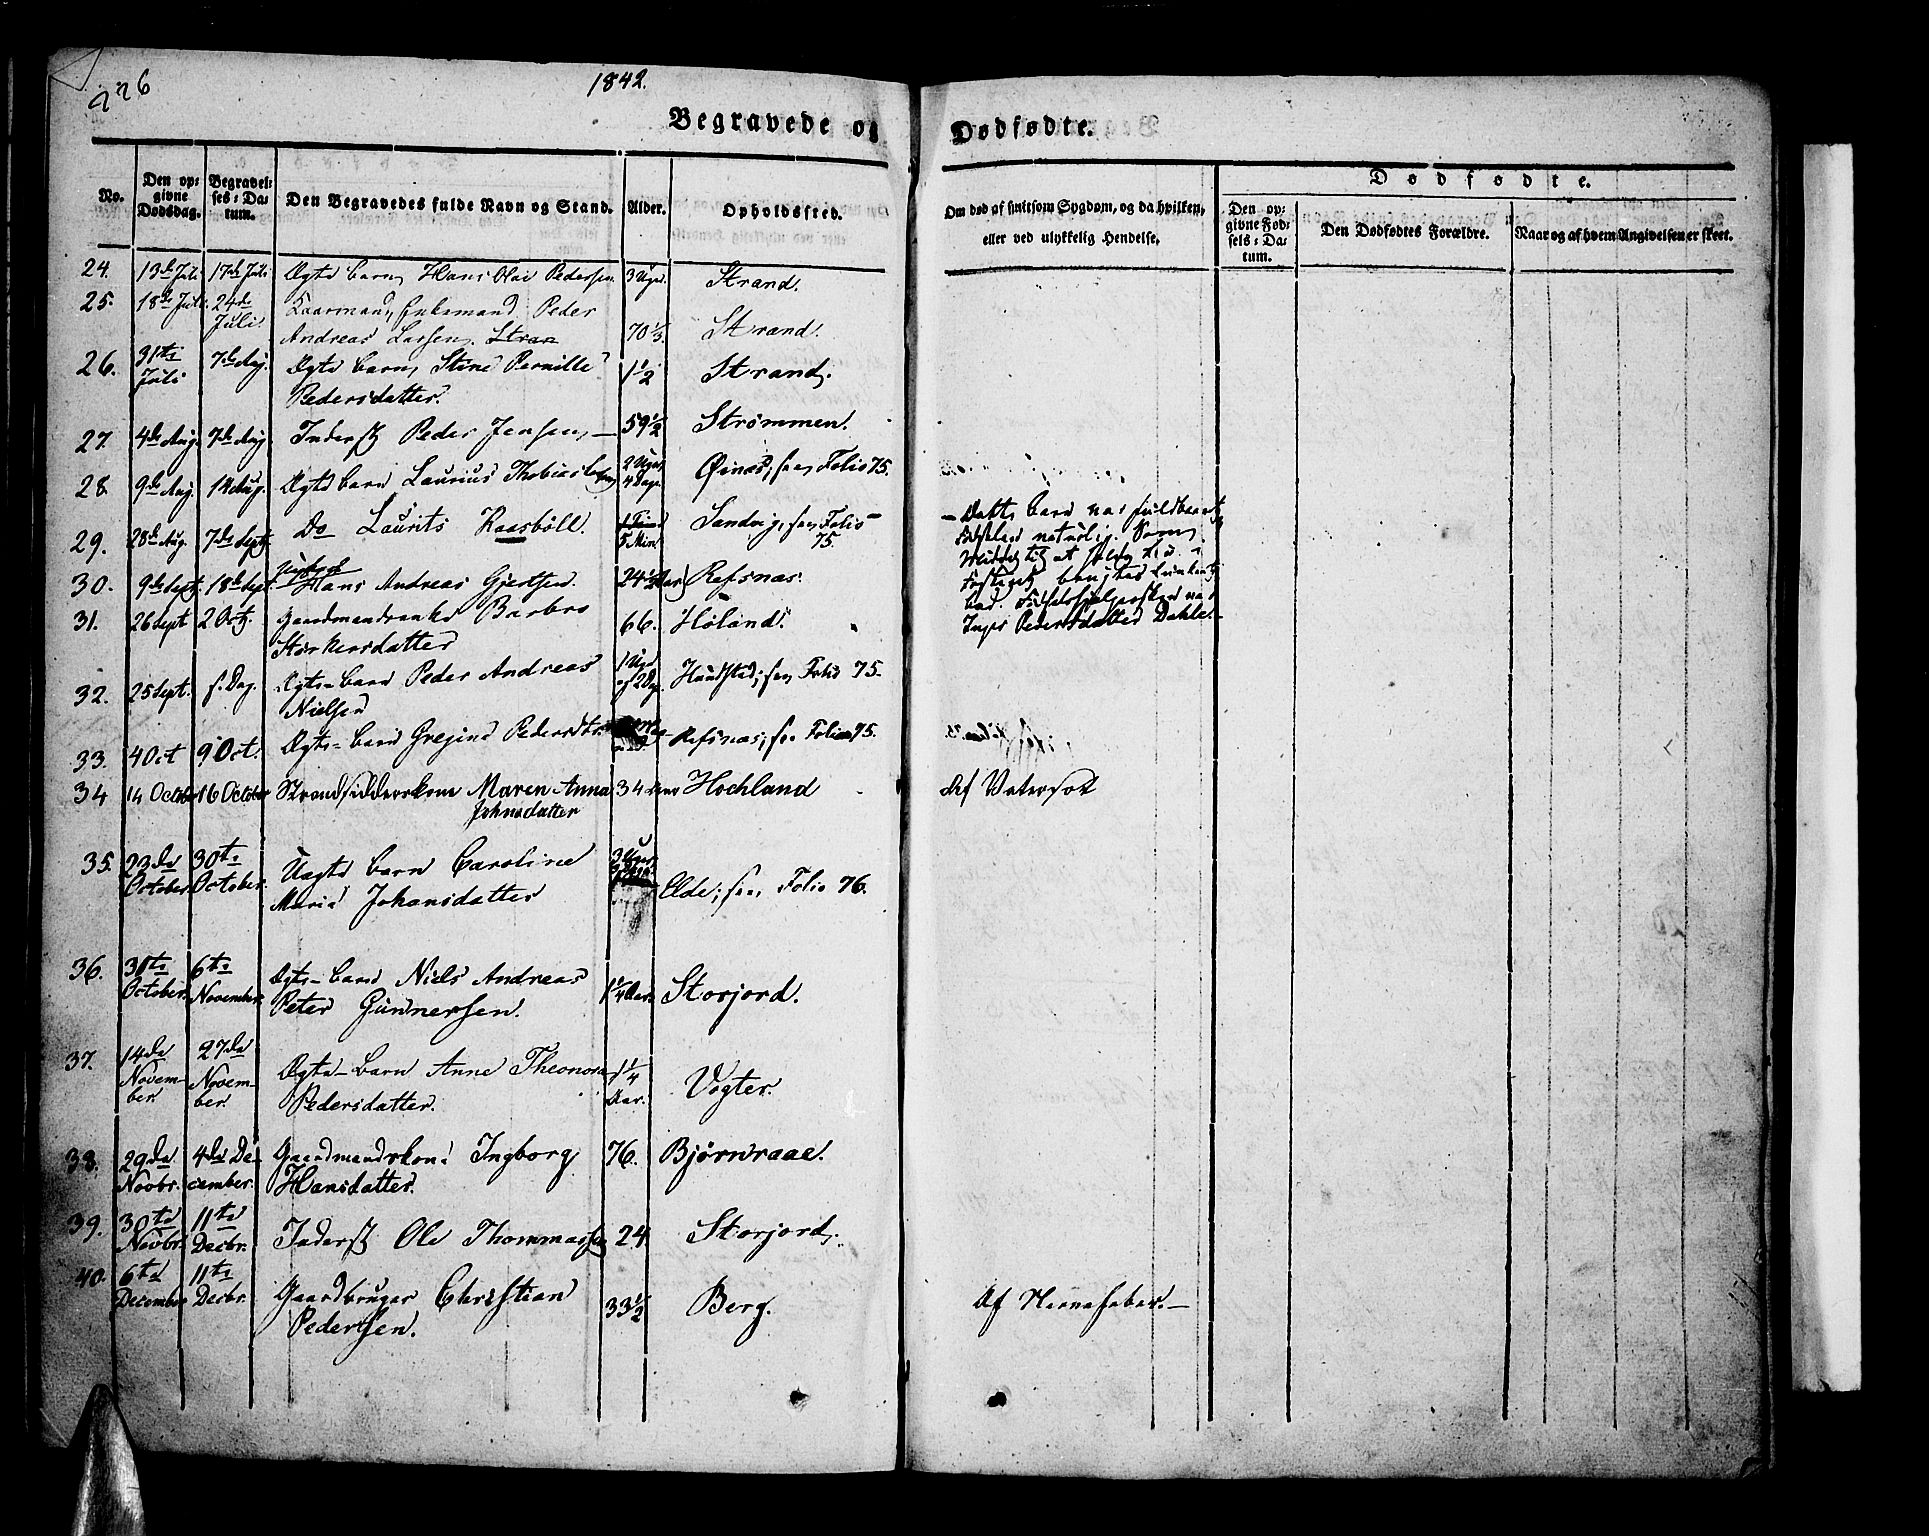 226
1842.
Begravede og Dødfødte.
No.
Den op-
givne
Dødsdag.
Begravel-
ses-Da-
tum.
Den Begravedes fulde Navn og Stand.
Alder.
Opholdssted.
Om død af smitsom Sygdom, og da hvilken,
eller ved ulykkelig Hendelse.
Dødfødte.
Den op-
givne Fød-
sels-Da-
tum.
Den Dødfødtes Forældre.
Naar og af hvem Angivelsen er skeet.
24. 13de Juli 17de Juli Ægte barn Hans Olai Pedersen. 3 Uger. Strand.
25. 18de Juli. 24de Juli. Kaarmand, Enkemand Peder
Andreas Larsen. Stran 70 1/3. Strand.
26. 31te Juli 7de Aug. Ægte barn Stine Pernille
Pedersdatter. 1 1/2 Strand.
27. 4de Aug. 7de Aug. Inderst Peder Jensen 59 1/2 Strømmen.
28. 9de Aug. 14 Aug. Ægte barn Laurius Thobias 2 Uger 4 Dage. Øinæs, see Folio 75.
29. 28de Aug. 7de Sept. Do Laurits Raasböll. 5 Min. Sandvig, see Folio
75.
Dette barn var fuldbaaret
naturlig. Som
Middel til at
benyttes
bad. Fødselshjelpersken var
Inger Pedersdatter Dahle.
30. 9de Sept. 18de Sept. Hans Andreas Gjertsen. 24 1/2 Aar Refsnæs.
31. 26 Sept 2 Oct. Gaardmandsenke Barbro
Storkersdatter 66. Höland.
32. 25 Sept. s. Dag. Ægte-barn Peder Andreas
Nielsen 1 Uge og 2 Dage. Haudstad; see Folio 75.
33. 4 Oct 9 Oct. Ægte-barn Grejine Pedersdtr. Refsnæs; see Folio 75.
34 14 October 16 October Strandsidderskone Maren Anna
Johnsdatter 34 Aar Hochland Af Vatersot
35. 23de October 30te October. Uægte barn Caroline
Maria Johansdatter 3 Uger Elde; see Folio 76.
36. 31te October. 6te November. Ægte-barn Niels Andreas
Peter Gunnersen. 1 1/4 Aar. Storjord.
37. 14de Novem-
ber. 27de Novem-
ber. Ægte-barn Anne Theonora
Pedersdatter. 1 1/4 Aar. Vogter.
38. 29de Novbr. 4de De-
cember. Gaardmandskone Ingborg
Hansdatter. 76. Bjørnraae.
39. 30te Novbr. 11te Decbr. Inderst Ole Thommassen 24 Storjord.
40. 6te December 11te Decbr. Gaardbruger Christian
Pedersen. 33 1/2 Berg. Af Nervefeber.